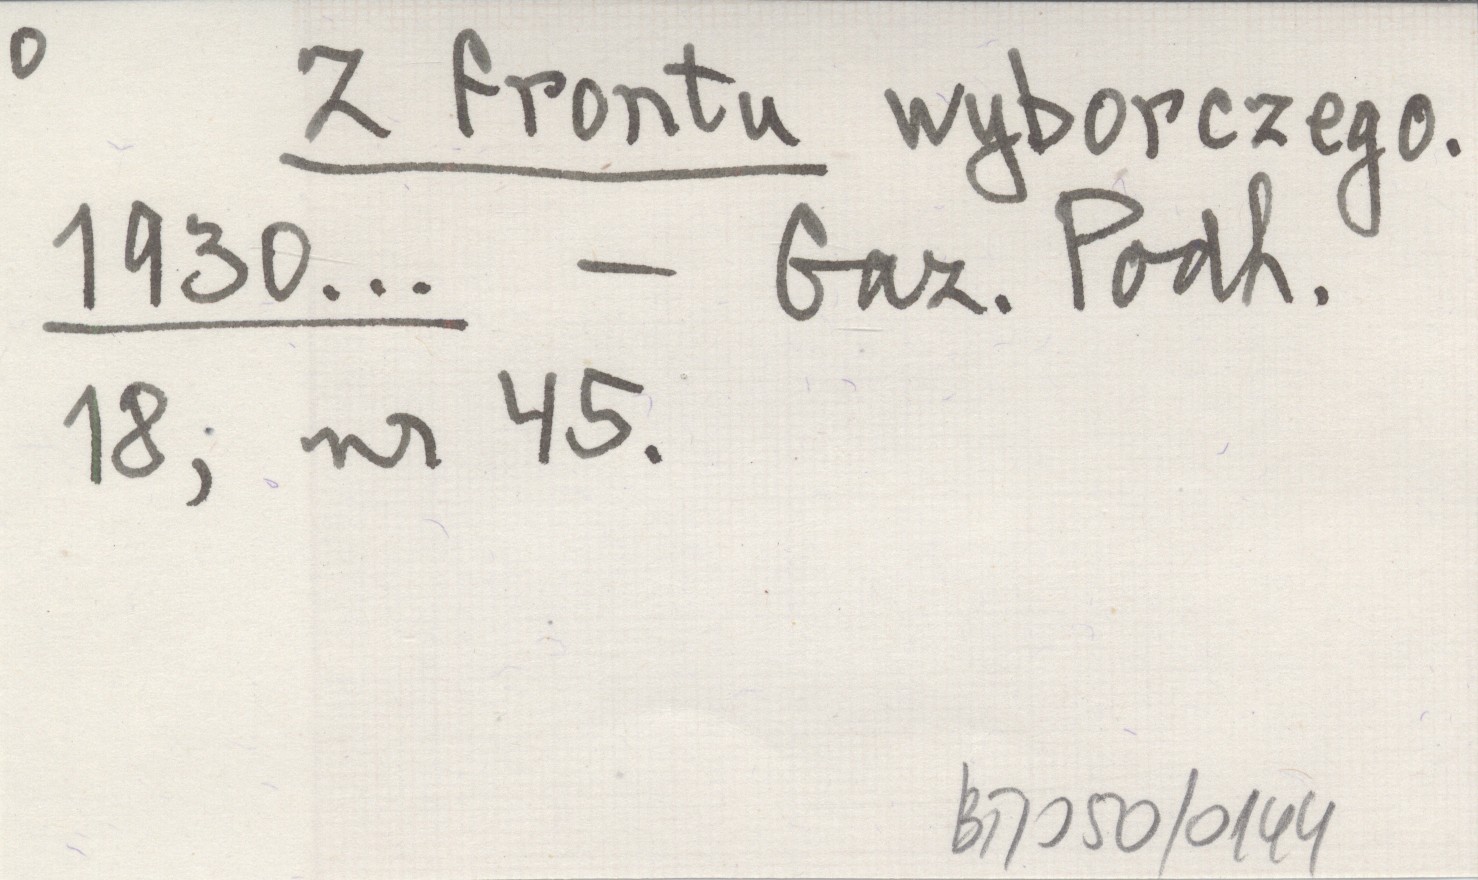 o Z frontu wyborczego.
1930... – Gaz. Podh.
18; nr 45.